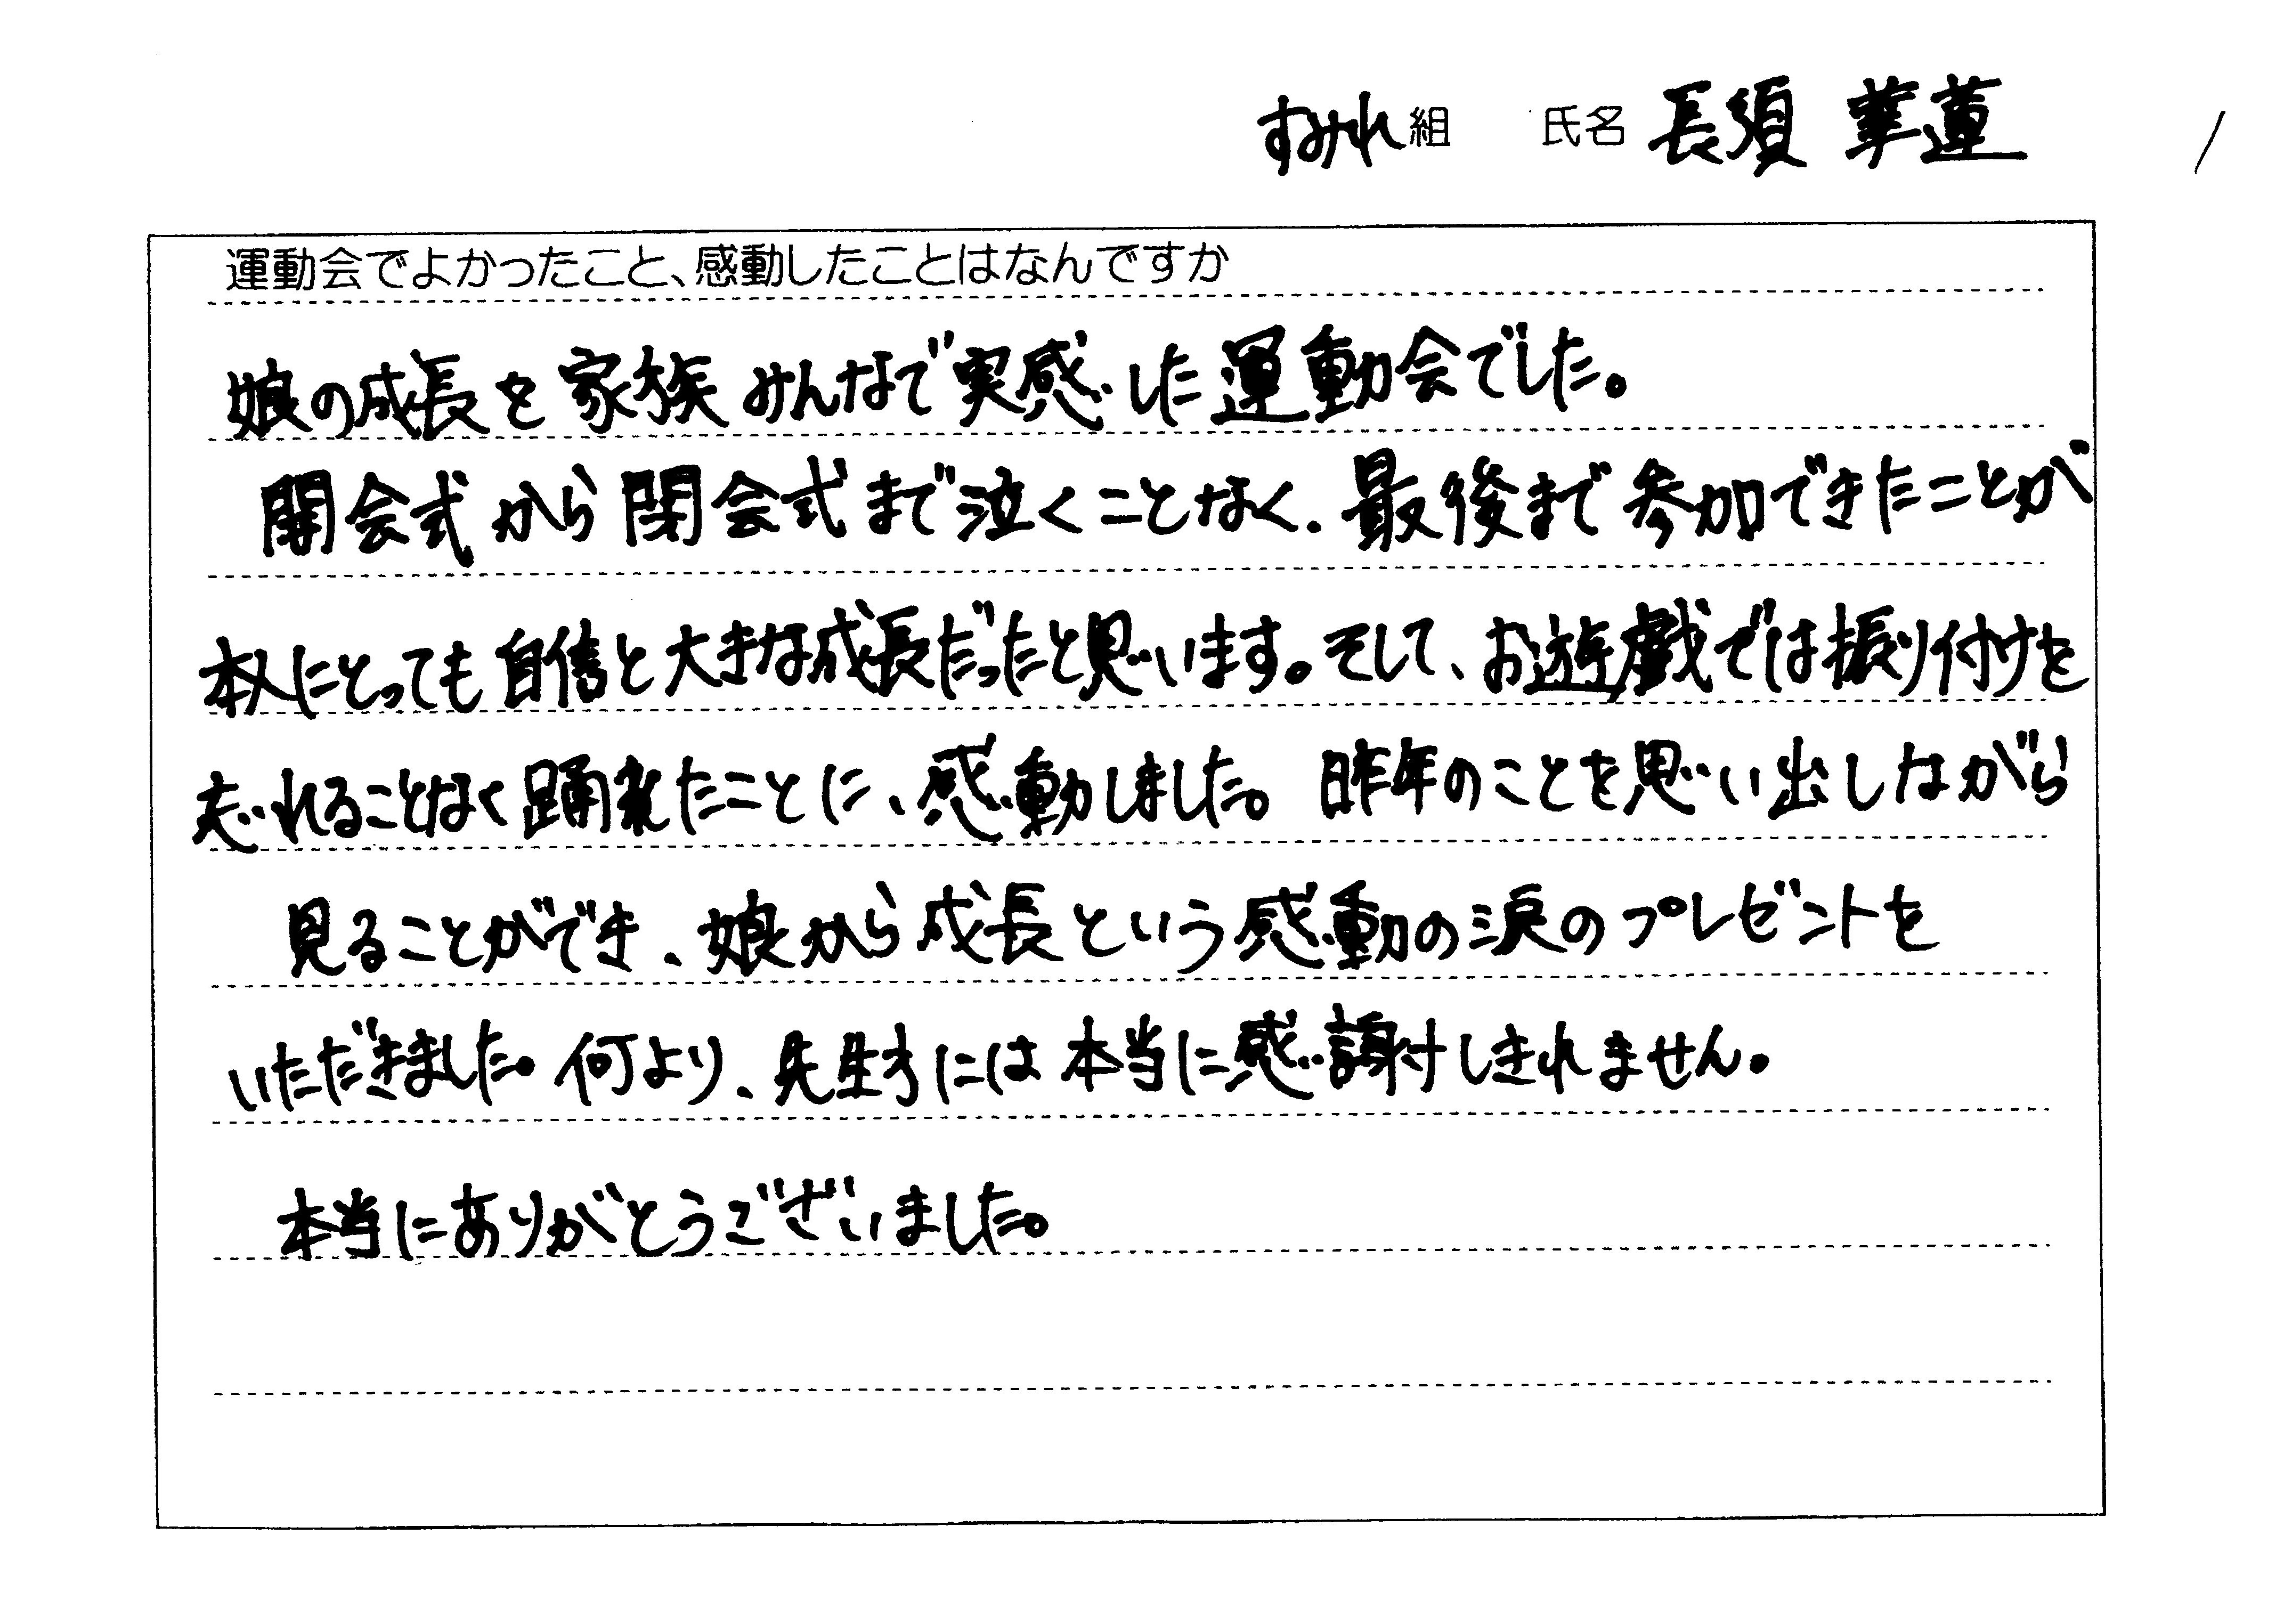 すみれ組 氏名 長須 華蓮
運動会でよかったこと、感動したことはなんですか
娘の成長を家族みんなで実感した運動会でした。
開会式から閉会式まで泣くことなく、最後まで参加できたことが
本人にとっても自信と大きな成長だったと思います。そして、お遊戯では振り付けを
忘れることなく踊れたことに、感動しました。昨年のことを思い出しながら
見ることができ、娘から成長という感動の涙のプレゼントを
いただきました。何より、先生方には本当に感謝しきれません。
本当にありがとうございました。